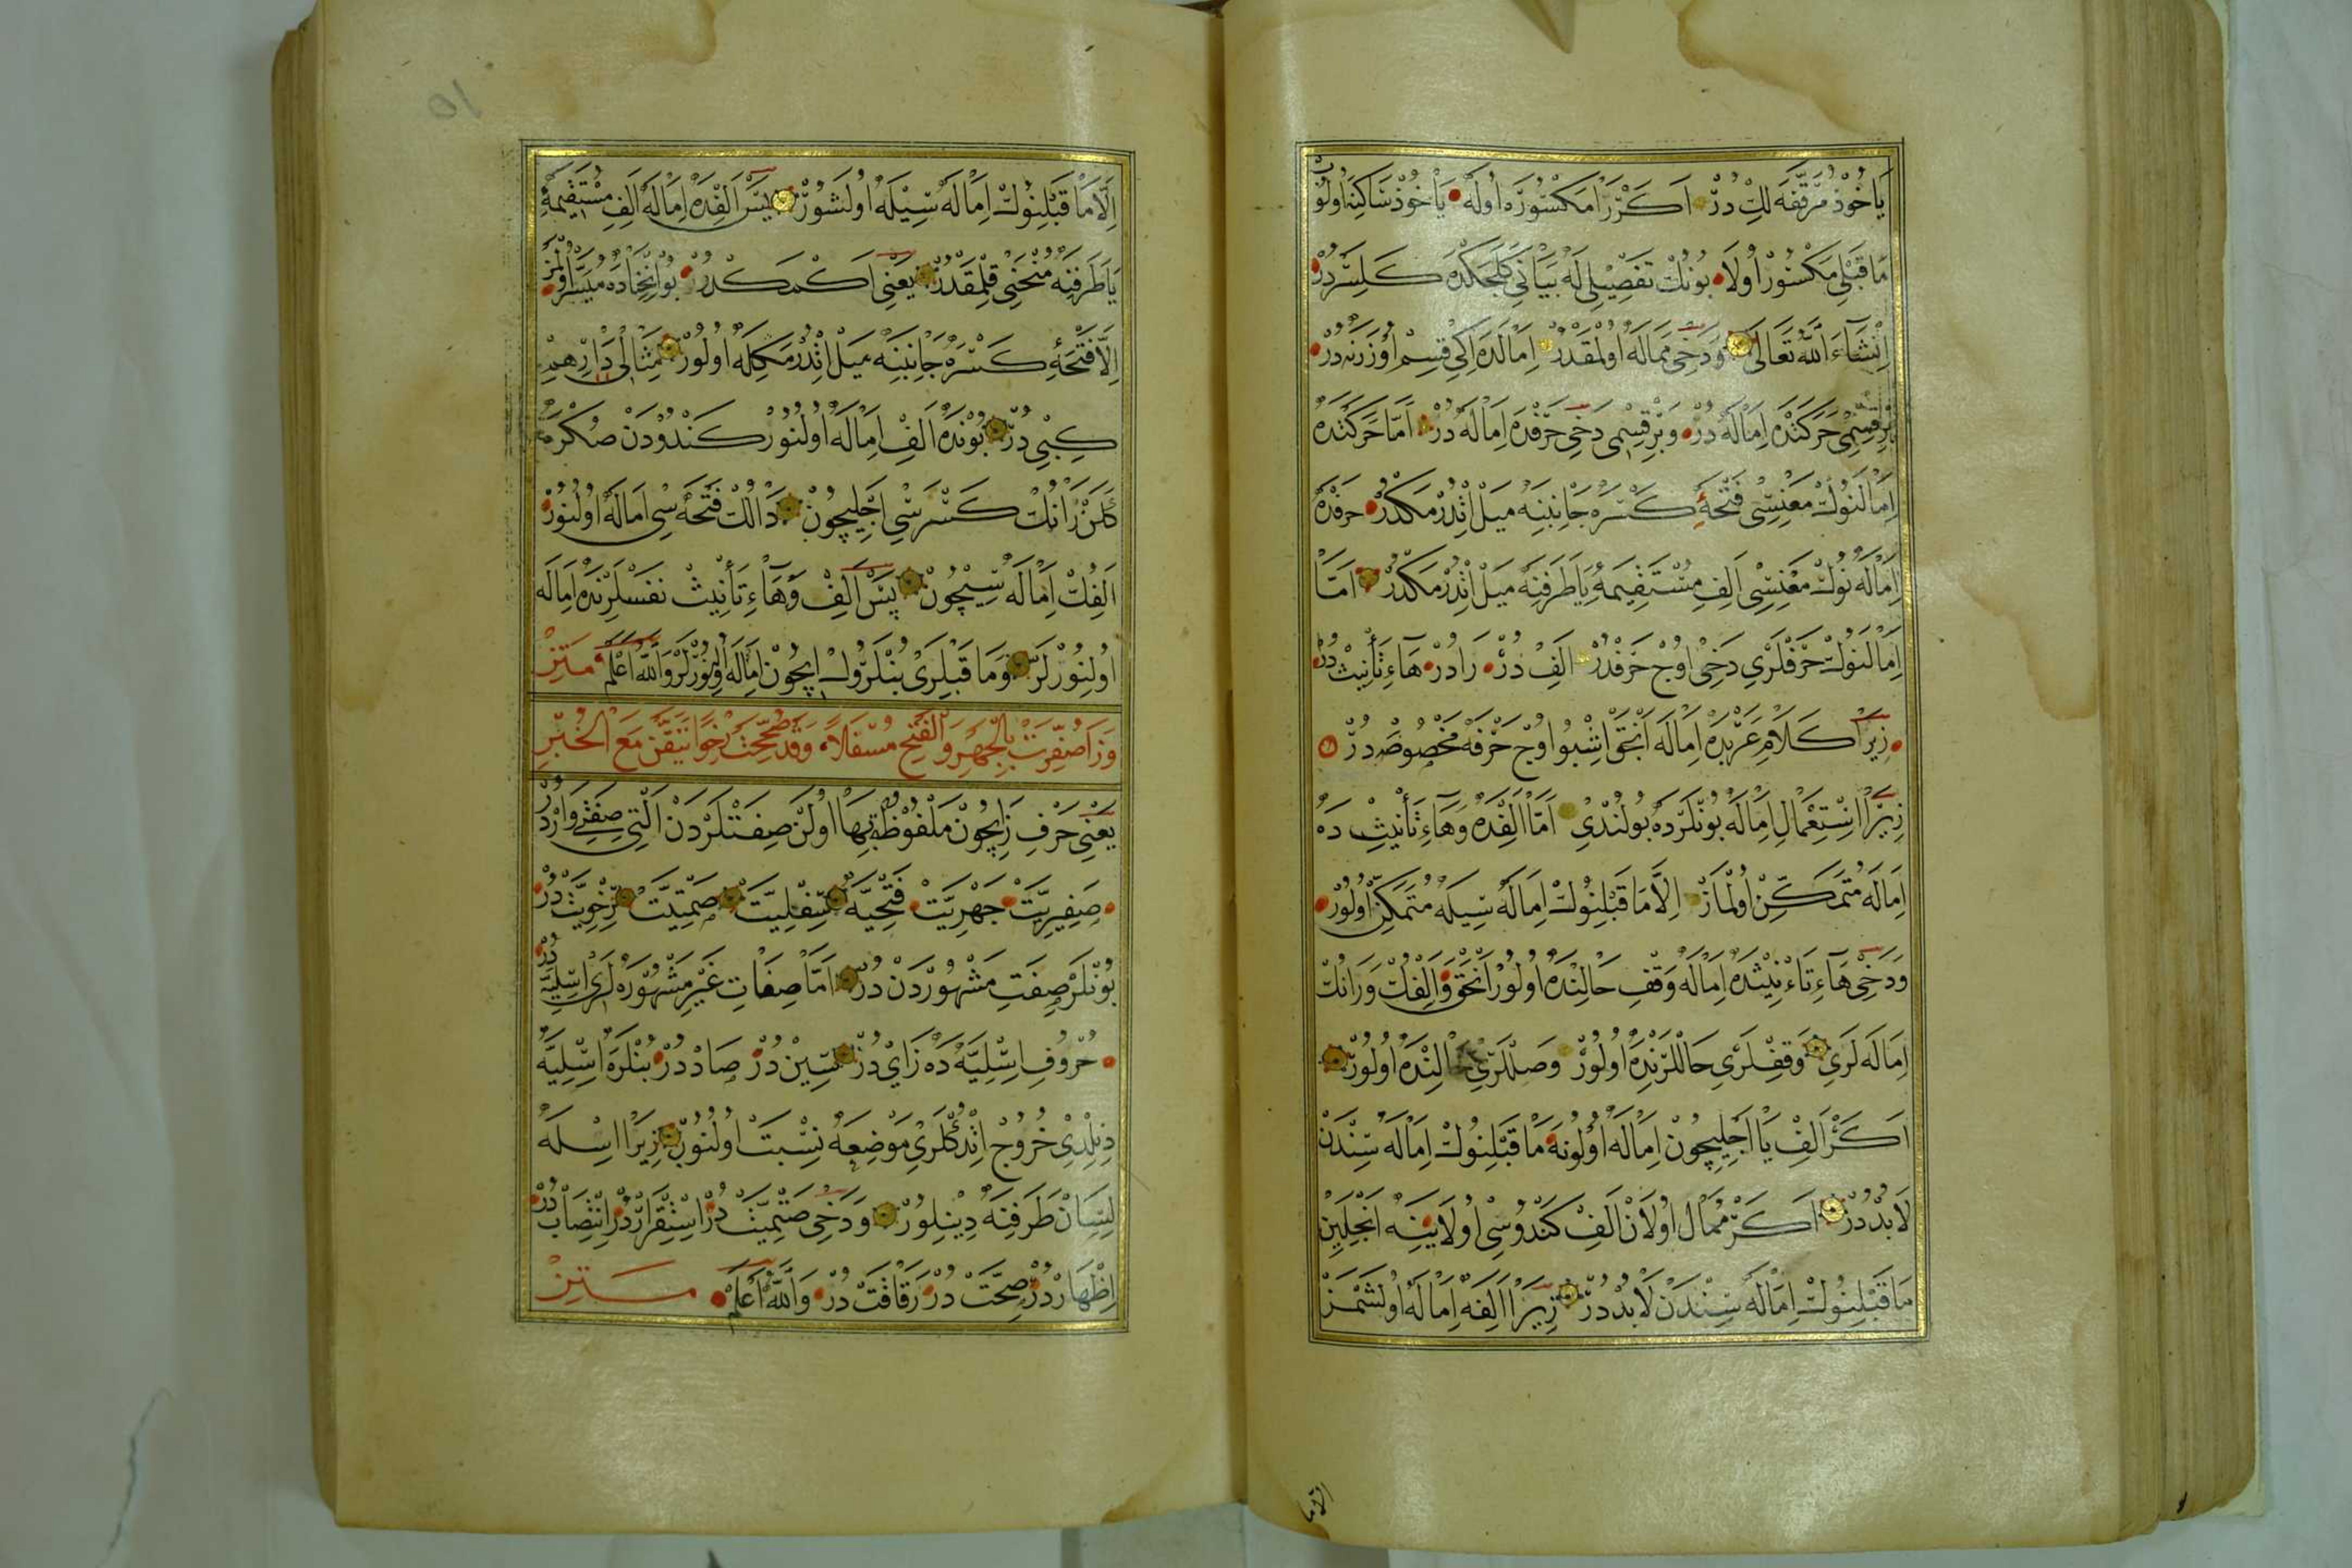 يَاخُوذْ مُرَقَّقَه لِكْ دُرْ اَكَرْ رَا مَكْسُورَه اُولَه يَاخُوذْ سَاكِنَه اُولُوبْ
مَا قَبْلِي مَكْسُورْ اُولَا بُونُكْ تَفْصِيلِي لَه بَيَانِي كَلَجَكْدَه كَلِسَرْدُرْ
اِنْشَآءَ اللّٰهُ تَعَالَى وَدَخِي مُمَالَه اُولْمَقْدُرْ اِمَالَه اِكِي قِسِمْ اُوزَرِنَه دُرْ
بِرْ قِسْمِي حَرَكَتْدَه اِمَالَه دُرْ وَبِرْ قِسْمِي دَخِي حَرْفْدَه اِمَالَه دُرْ اَمَّا حَرَكَتْدَه
اِمَالَنُوكْ مَعْنِسِي فَتْحَهٔ كَسْرَه جَانِبِنَه مَيْلْ اِتْدُرْمَكْدُرْ حَرْفْدَه
اِمَالَه نُوكْ مَعْنِسِي اَلِفِ مُسْتَقِيمَهٔ يَا طَرَفِنَه مَيْلْ اِتْدُرْمَكْدُرْ اَمَّا
اِمَالَنُوكْ حَرْفْلَرِي دَخِي اُوچْ حَرْفْدُرْ اَلِفْ دُرْ رَا دُرْ هَاءِ تَأْنِيثْ دُرْ
زِيرَا كَلَامِ عَرَبْدَه اِمَالَه اَنْجَقْ اِشْبُو اُوچْ حَرْفَه مَخْصُوصْ دُرْ
زِيرَا اِسْتِعْمَالِ اِمَالَه بُونْلَرْدَه بُولُنْدِي اَمَّا اَلِفْدَه وَهَاءِ تَأْنِيثْ دَه
اِمَالَه مُتَمَكِّنْ اُولْمَازْ اِلَّا مَا قَبْلِنُوكْ اِمَالَه سِيلَه مُتَمَكِّنْ اُولُورْ
وَدَخِي هَاءِ تَاءْنِيثْدَه اِمَالَه وَقْفِ حَالِنْدَه اُولُورْ اَنْجَقْ وَاَلِفُكْ وَرَانُكْ
اِمَالَه لَرِي وَقْفْلَرِي حَالْلَرِنْدَه اُولُورْ وَصِلْلَرِي حَالِنْدَه اُولُورْ
اَكَرْ اَلِفْ يَا اَجْلِيچُونْ اِمَالَه اُولُونَه مَا قَبْلِنُوكْ اِمَالَه سِنْدَنْ
لَابُدْ دُرْ اَكَرْ مُمَالْ اُولَانْ اَلِفْ كَنْدُوسِي اُولَا يِنَه اَنْجِلَيِنْ
مَا قَبْلِنُوكْ اِمَالَه سِنْدَنْ لَابُدْ دُرْ زِيرَا اَلِفَه اِمَالَه اُولَشْمَزْ
اِلَّا مَا
اِلَّا مَا قَبْلِنُوكْ اِمَالَه سِيلَه اُولَشُورْ پَسْ اَلِفْدَه اِمَالَه اَلِفِ مُسْتَقِيمَهٔ
يَا طَرَفِنَه مُنْحَنِي قِلْمَقْدُرْ يَعْنِي اَكْمَكْدُرْ بُو اِنْحِنَادَه مُيَسَّرْ اُولْمَزْ
اِلَّا فَتْحَهٔ كَسْرَه جَانِبِنَه مَيْلْ اِتْدُرْمَكِلَه اُولُورْ مِثَالِي دَارِهِمْ
كِبِي دُرْ بُونْدَه اَلِفْ اِمَالَه اُولُنُورْ كَنْدُودَنْ صُكْرَه
كَلَنْ رَانُكْ كَسْرَسِي اَجْلِيچُونْ دَالُكْ فَتْحَه سِي اِمَالَه اُولُنُورْ
اَلِفُكْ اِمَالَه سِيچُونْ پَسْ اَلِفْ وَهَاءِ تَأْنِيثْ نَفْسْلَرِنْدَه اِمَالَه
اُولِنُورْلَرْ وَمَا قَبْلِرَى بُنْلَرُوكْ اِيچُونْ اِمَالَه اُولِنُورْلَرْ وَاللّٰهُ اَعْلَمْ مَتِنْ
وَزَا صُفِّرَتْ بِالْجَهْرِ وَالْفَتْحِ مُسْفَلاً وَقَدْ صُحِّحَتْ رِخْوًا تَيَقَّنْ مَعَ الْخُبْرِ
يَعْنِي حَرْفِ زَا اِيچُونْ مَلْفُوظٌ بِهَا اُولَنْ صِفَتْلَرْدَنْ اَلْتِي صِفَتْ وَارْدُرْ
صَفِيرِيَّتْ جَهْرِيَّتْ فَتْحِيَّه سِفْلِيَّتْ صَمْتِيَّتْ رِخْوِيَّتْ دُرْ
بُونْلَرْ صِفَتِ مَشْهُورْدَنْ دُرْ اَمَّا صِفَاتِ غَيْرِ مَشْهُورَه لَرِي اَسَلِيَّه دُرْ
حُرُوفِ اَسَلِيَّه دَه زَايْ دُرْ سِينْ دُرْ صَادْ دُرْ بُنْلَرَه اَسَلِيَّه
دِنِلْدِي خُرُوجْ اِتْدُكْلَرِي مَوْضِعَه نِسْبَتْ اُولُنُوبْ زِيرَا اَسَلَه
لِسَانْ طَرَفِنَه دِينِلُورْ وَدَخِي صَتْمِيَّتْ دُرْ اِسْتِقْرَارْدُرْ اِنْتِصَابْ دُرْ
اِظْهَارْ دُرْ صِحَّتْ دُرْ رَقَاقَتْ دُرْ وَاللّٰهُ اَعْلَمْ مَتِنْ